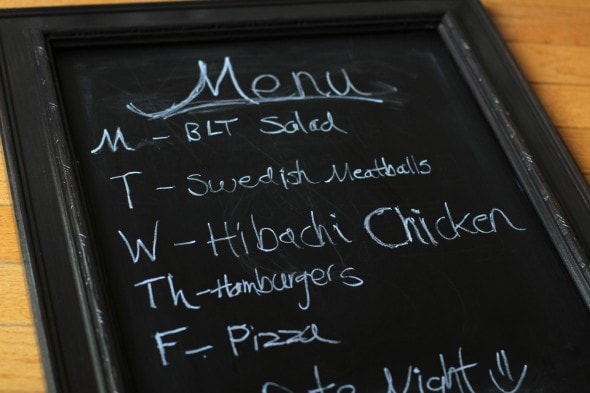 Menu
M - BLT Salad
T - Swedish Meatballs
W - Hibachi Chicken
Th - Hamburgers
F - Pizza
Date Night :)